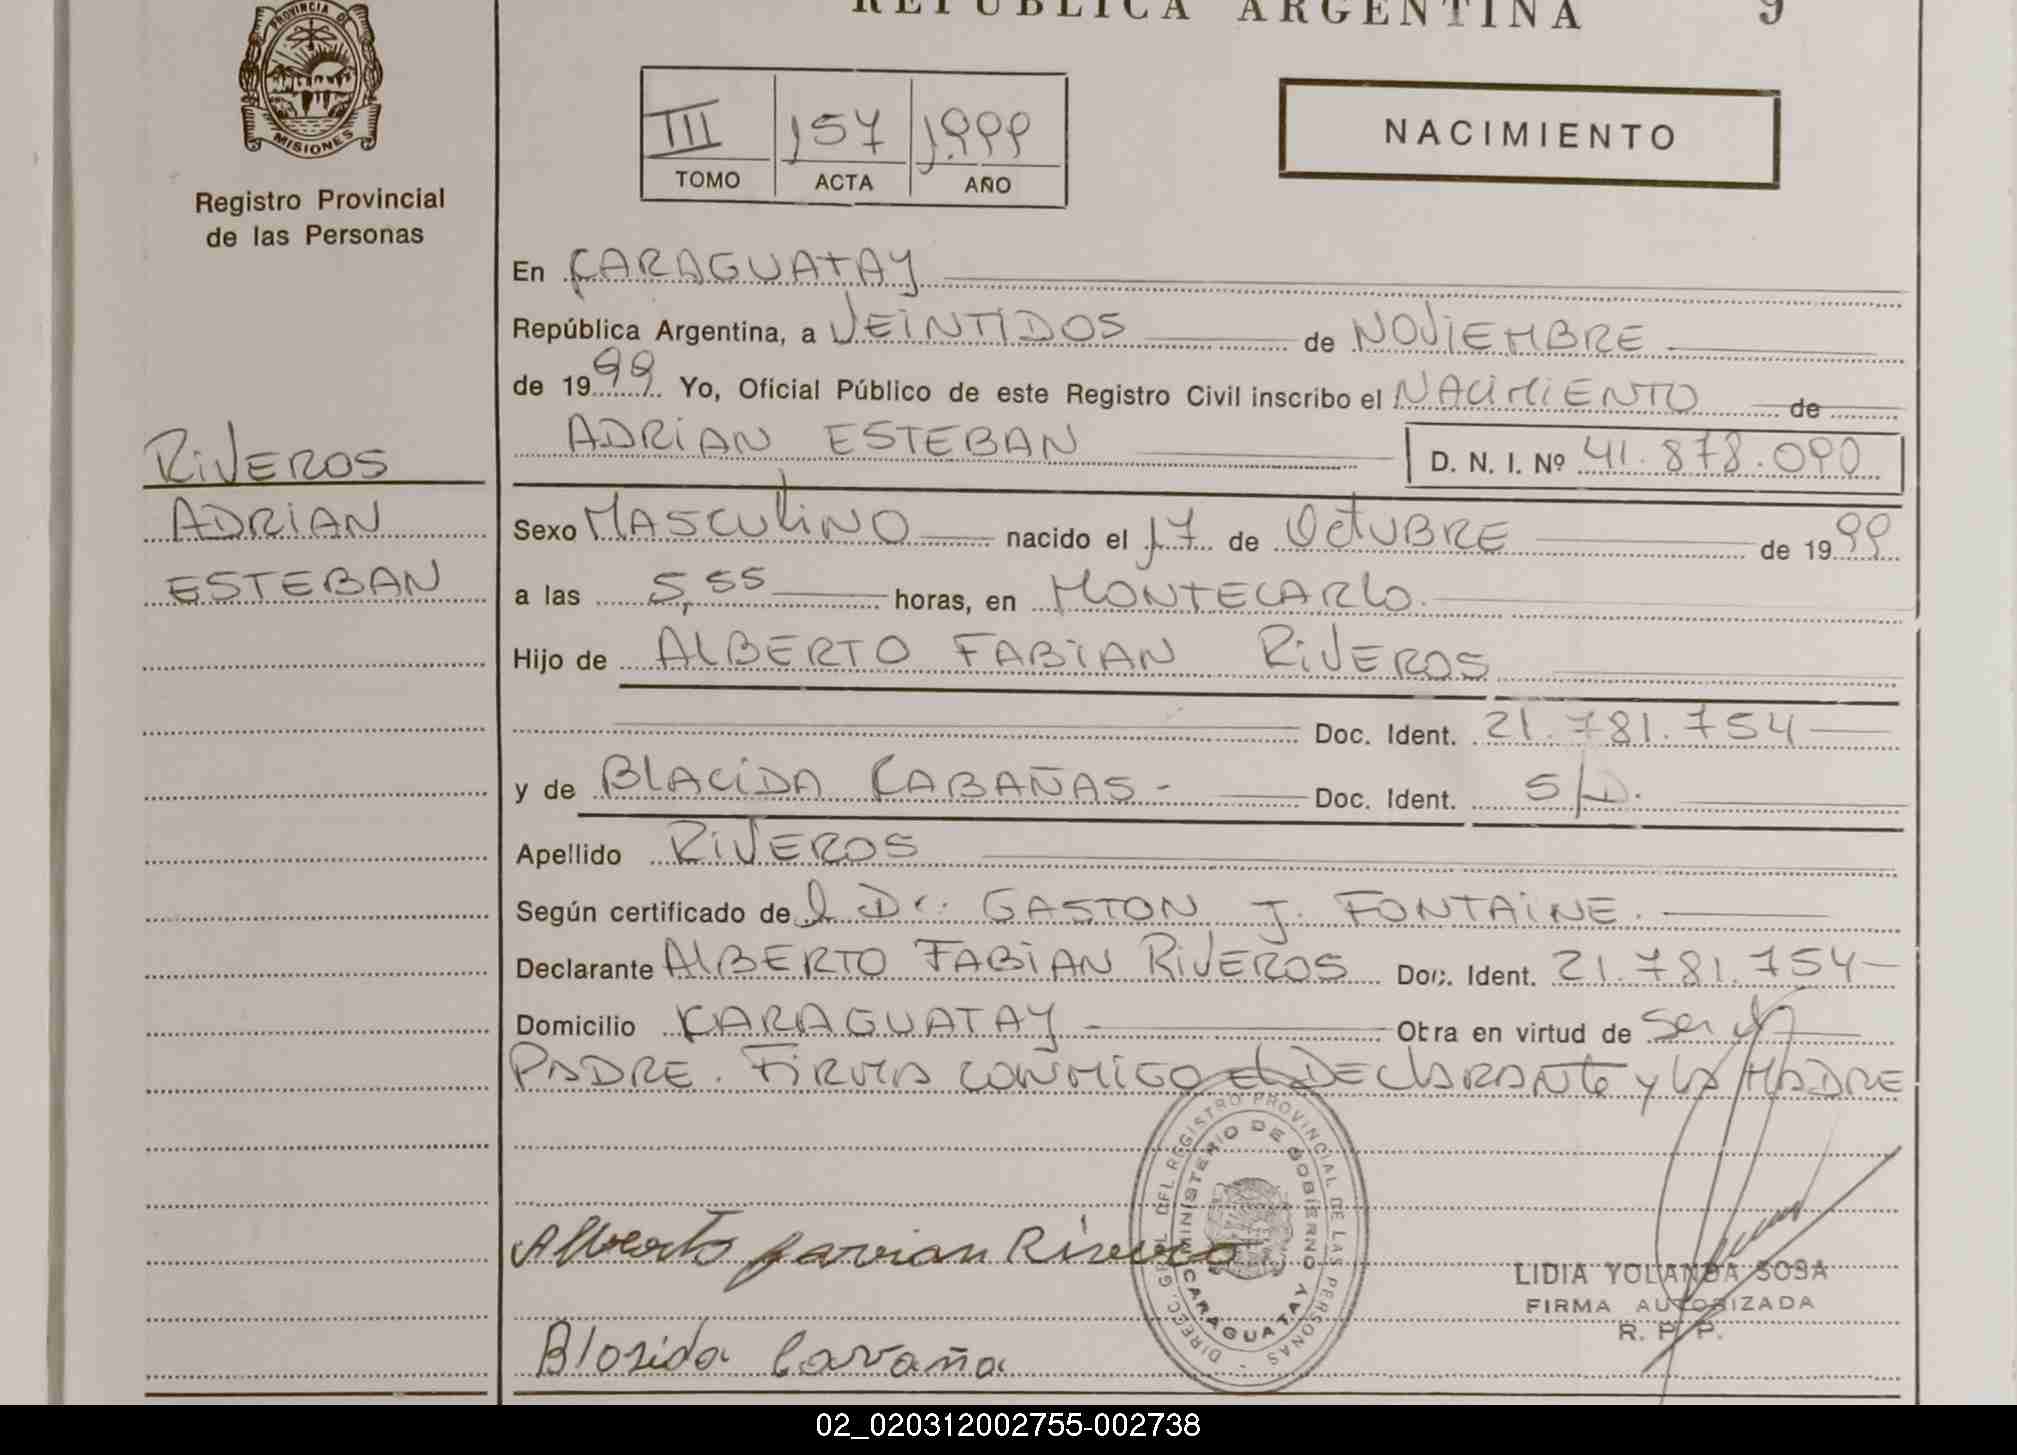 PROVINCIA DE
MISIONES
Registro Provincial
de las Personas
RIVEROS
ADRIAN
ESTEBAN
REPUBLICA ARGENTINA 9
III 157 1.999
TOMO ACTA AÑO
NACIMIENTO
En CARAGUATAY
República Argentina, a VEINTIDOS de NOVIEMBRE
de 1999 Yo, Oficial Público de este Registro Civil inscribo el NACIMIENTO de
ADRIAN ESTEBAN D. N. I. Nº 41.878.090
Sexo MASCULINO nacido el 17 de OCTUBRE de 1999
a las 5,55 horas, en MONTECARLO
Hijo de ALBERTO FABIAN RIVEROS
Doc. Ident. 21.781.754
y de BLACIDA CABAÑAS - Doc. Ident. S/D.
Apellido RIVEROS
Según certificado del Dr. GASTON J. FONTAINE.
Declarante ALBERTO FABIAN RIVEROS Doc. Ident. 21.781.754
Domicilio CARAGUATAY - Obra en virtud de ser el
PADRE. FIRMA CONMIGO el DECLARANTE y LA MADRE
DIREC. GRAL. DEL REGISTRO PROVINCIAL DE LAS PERSONAS -
MINISTERIO DE GOBIERNO
CARAGUATAY
Alberto favian Rivero
LIDIA YOLANDA SOSA
FIRMA AUTORIZADA
R. P. P.
Blosida Cavaña
02_020312002755-002738